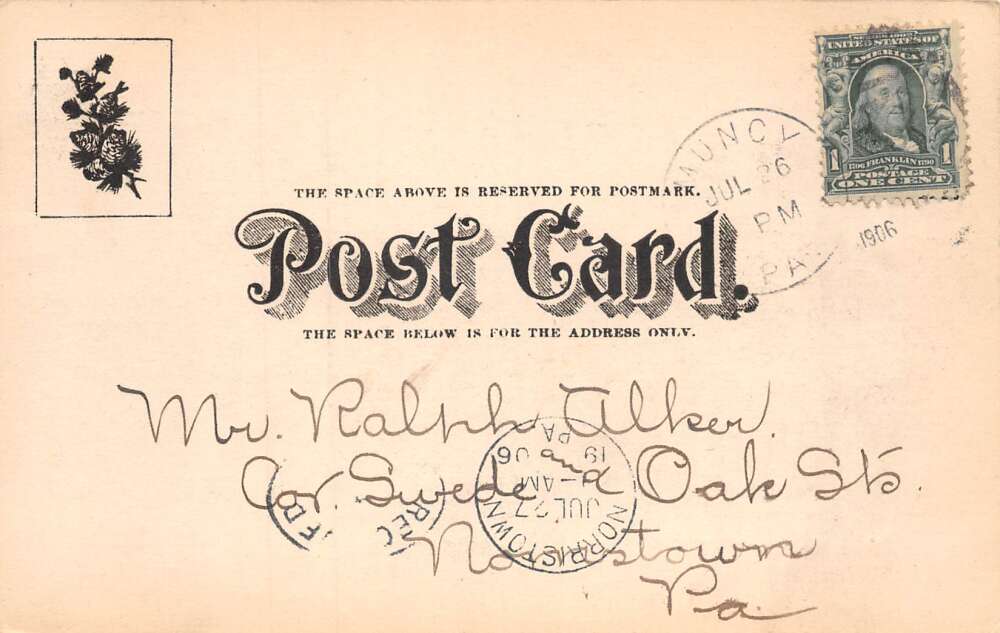 SERIES 1902
UNITED STATES OF
AMERICA
1 1
1706 FRANKLIN 1790
POSTAGE
ONE CENT
MUNCY
JUL 26
PM
1906
PA.
THE SPACE ABOVE IS RESERVED FOR POSTMARK.
Post Card.
THE SPACE BELOW IS FOR THE ADDRESS ONLY.
Mr. Ralph Alker.
Cor. Swede and Oak Sts.
Norristown
Pa.
NORRISTOWN
JUL 27
-AM
19 06
PA
REC'D